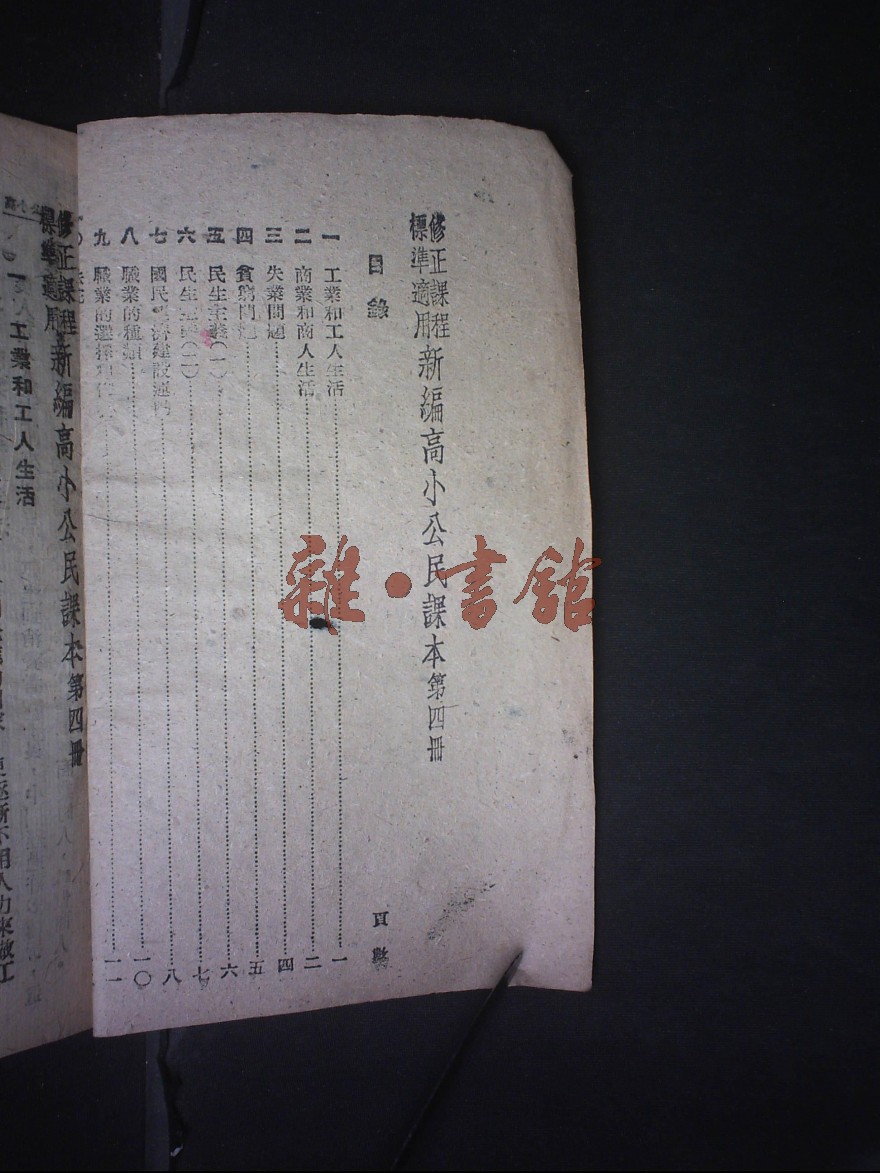 修正課程
標準適用
新編高小公民課本第四冊
目錄
頁數
一 工業和工人生活 一
二 商業和商人生活 二
三 失業問題 四
四 貧窮問題 五
五 民生主義(一) 六
六 民生主義(二) 七
七 國民經濟建設運動 八
八 職業的種類 一〇
九 職業的選擇 一一
修正課程
標準適用
新編高小公民課本第四冊
一 工業和工人生活
更逐漸不用人力來做工
雜·書館